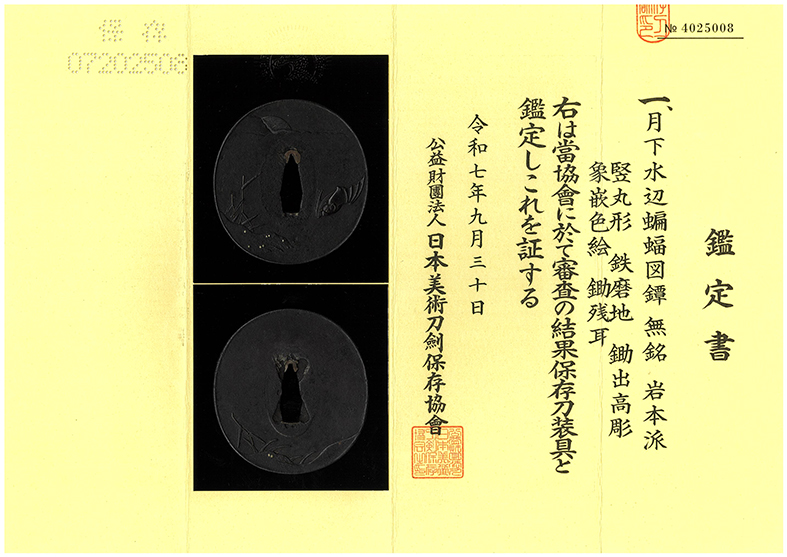 鑑定書
№ 4025008
一、月下水辺蝙蝠図鐔 無銘 岩本派
竪丸形 鉄磨地 鋤出高彫
象嵌色絵 鋤残耳
右は當協會に於て審査の結果保存刀装具と
鑑定しこれを証する
令和七年九月三十日
公益財團法人 日本美術刀劍保存協會
保存
07202508